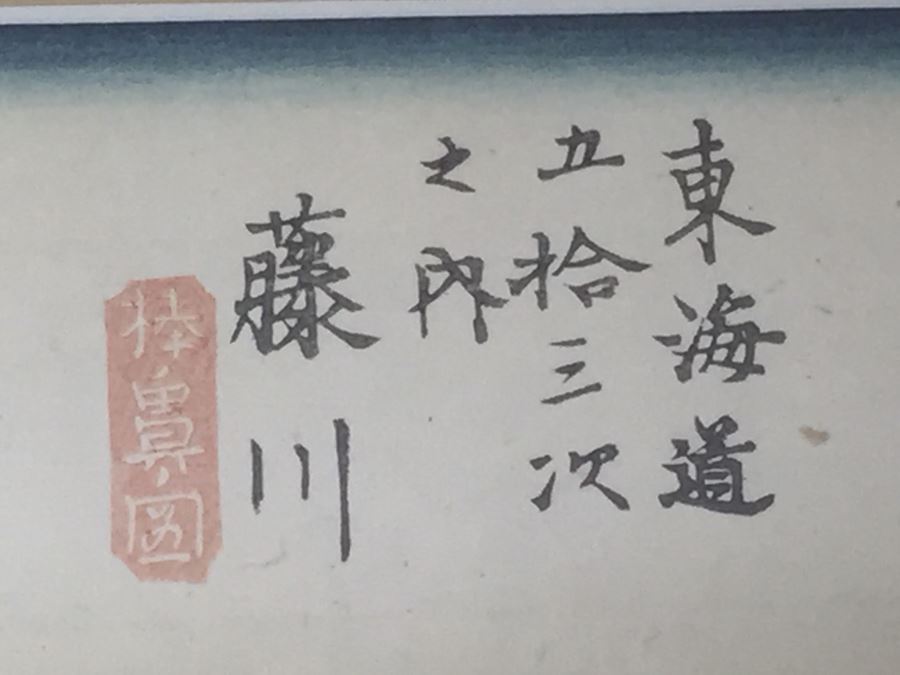 東海道
五拾三次
之内
藤川
棒鼻ノ図